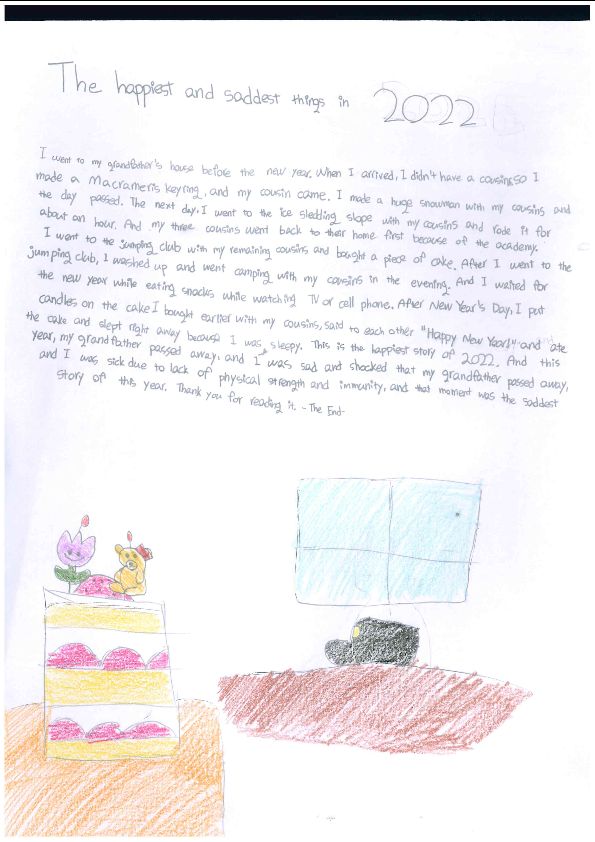 The happiest and saddest things in 2022
I went to my grandfather's house before the new year. When I arrived, I didn't have a cousins, so I
made a Macrameris keyring, and my cousin came. I made a huge snowman with my cousins and
the day passed. The next day, I went to the ice sledding slope with my cousins and rode it for
about an hour. And my three cousins went back to their home first because of the academy.
I went to the jumping club with my remaining cousins and bought a piece of cake. After I went to the
jumping club, I washed up and went camping with my cousins in the evening. And I waited for
the new year while eating snacks while watching TV or cell phone. After New Year's Day, I put
candles on the cake I bought earlier with my cousins, said to each other "Happy New Year!" and ate
the cake and slept right away because I was sleepy. This is the happiest story of 2022. And this
year, my grandfather passed away. and I was sad and shocked that my grandfather passed away,
and I was sick due to lack of physical strength and immunity, and that moment was the saddest
story of this year. Thank you for reading it. - The End-